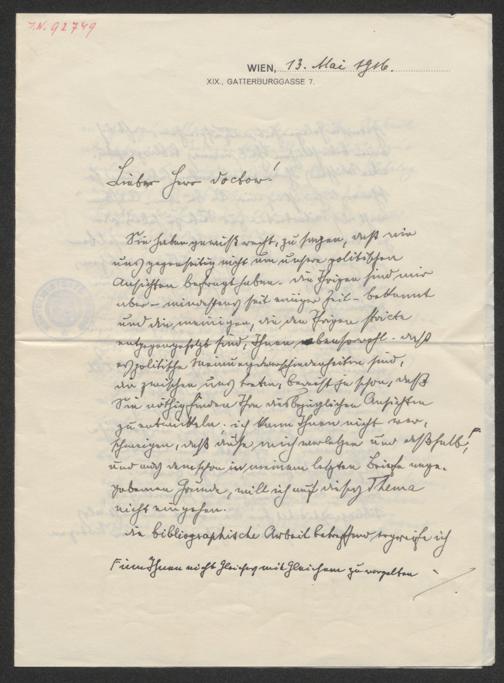 I.N. 92749
WIEN, 13. Mai 1916.
XIX., GATTERBURGGASSE 7.
Lieber Herr Doctor!
Sie haben gewiß recht, zu sagen, daß wir
uns gegenseitig nicht um unsere politischen
Ansichten befragt haben. Die Ihrigen sind mir
aber – mindestens seit einiger Zeit – bekannt
und die meinigen, die den Ihrigen stricte
entgegengesetzt sind, Ihnen ebensowohl. daß
es politische Meinungsverschiedenheiten sind,
die zwischen uns treten, beweist ja schon, daß
Sie nöthig finden Ihre diesbezüglichen Ansichten
zu entwickeln. ich kann Ihnen nicht ver-
schweigen, daß diese mich verletzen und deßhalb,
und aus dem schon in meinem letzten Briefe ange-
gebenen Grunde, will ich auf dieses Thema
nicht eingehen.
die bibliographische Arbeit betreffend ergreife ich
um Ihnen nicht Gleiches mit Gleichem zu vergelten